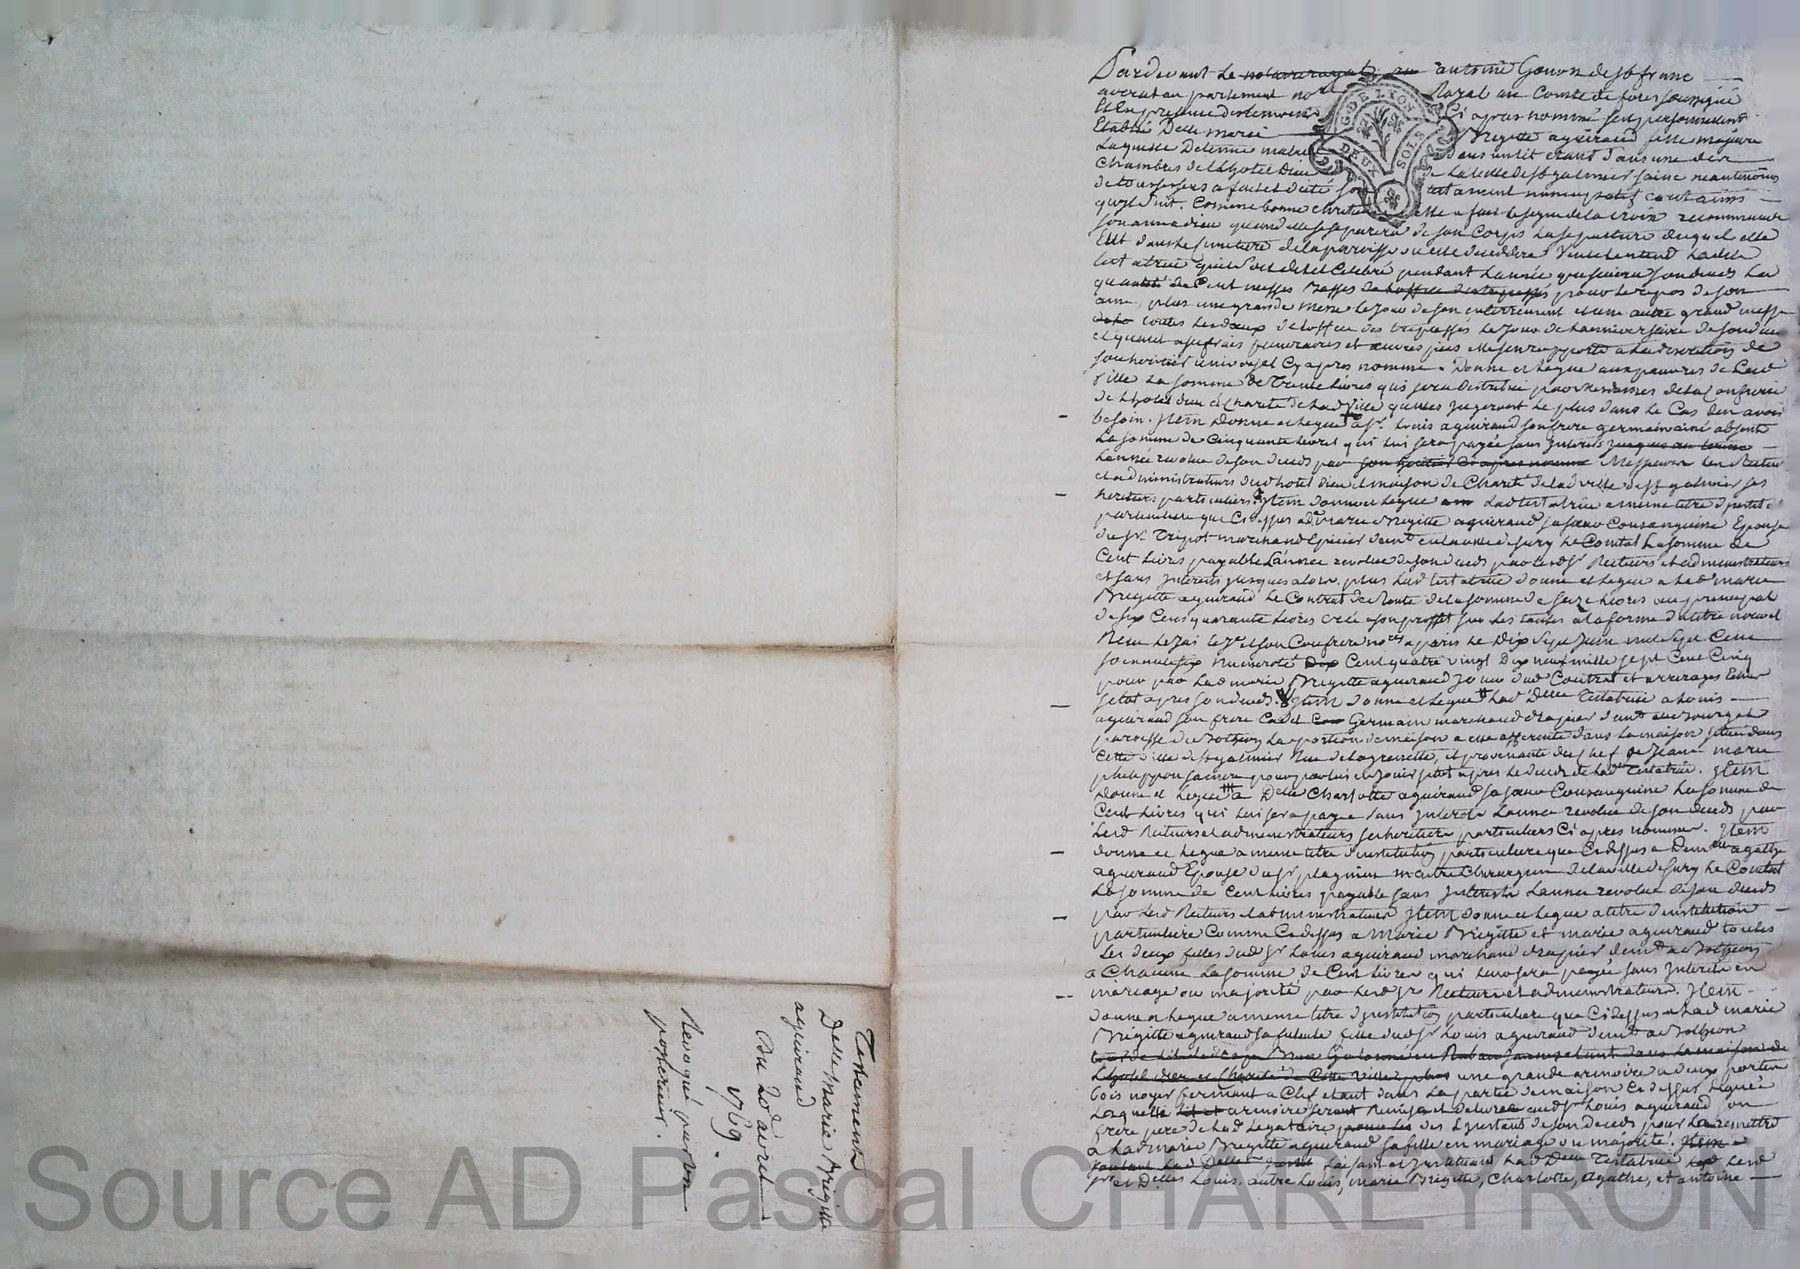 Testament
Delle Marie Brigitte
aguiraud
Du 20 avril
1769.
Revoqué par un
posterieur.
Pardevant Le notaire royal antoine Gonon de St franc
avocat au parlement no.re Royal au Comté de fores soussigné
Et En presence des temoins Ci apres nommé fut personnellement
Etablie Delle marie Brigitte aguiraud fille majeure
Laquelle Detenue malade dans un lit etant dans une des
Chambres de L'hotel Dieu de La ville de St galmier saine neantmoins
de tous ses sens a fait et dicté son testament nuncupatif contenant
qu'il suit. Comme bonne chretienne Elle a fait le signe de la croix recommandé
son ame a dieu quand elle se separera de son Corps La sepulture duquel elle
Elit dans le simetiere de la paroisse ou elle decedera Veut et entend Ladite
testatrice qu'il soit dit et Celebré pendant L'année qui suivra son deceds La
quantité de Cent messes Basses de L'office des trepassés pour le repos de son
ame, plus une grande messe le jour de son enterrement et une autre grand messe
toutes Les deux de L'office des trepassés Le jour de L'anniversaire de son deces
et quant a ses frais funeraires et œuvres pies Elle s'en rapporte a La discretion de
son heritier universel Cy apres nommé. Donne et Legue aux pauvres de Lad
Ville La somme de Trente Livres qui sera Distribué par Les dames de la Confrerie
de L'hotel dieu et Charité de Lad Ville qu'elles jugeront le plus dans le Cas d'en avoir
besoin. Item Donne et Legue a Sr. Louis aguiraud son frere germain ainé absent
La somme de Cinquante Livres qui lui sera payée sans Interets jusques au terme
L'année revolue de son deceds par son heritier Ci apres nommé Messieurs Les Recteurs
et administrateurs dud hotel dieu et maison de Charité de Lad ville de St galmier ses
heritiers particuliers. Item donne et Legue Lad testatrice a meme titre d'institon
particuliere que Ci dessus a De marie Brigitte aguiraud sa sœur Consanguine Epouse
du Sr. Tripot marchand Epicier demt en la ville de Sury Le Comtal La somme de
Cent Livres payable L'année revolue de son deceds par Lesd Srs Recteurs et administrateurs
et sans Interets jusques alors. plus Lad testatrice donne et Legue a Lad marie
Brigitte aguiraud Le Contrat de Rente de La somme de seize Livres au principal
de six Cens quarante Livres créé a son proffit sur Les tailles a la forme du titre nouvel
son Confrere nores a paris Le Dix Sept Juin mil Sept Cent
soixante six numeroté Cent quatre vingt Dix neuf mille sept Cent Cinq
pour par Lad marie Brigitte aguiraud Jouir dud Contrat et arrerages
sitot apres son deceds. Item donne et Legue Lad Delle Testatrice a Louis
aguiraud son frere Cadet Germain marchand drapier demt au Bourg et
paroisse de Boisson La portion de maison a elle afferente dans La maison située dans
Cette ville de St galmier Rue de La grenette, et provenante du Chef de Jeanne marie
philippon sa mere pour par lui en jouir sitot apres Le deceds de Lad Testatrice. Item
Donne et Legue a Delle Charlotte aguiraud sa sœur Consanguine La somme de
Cent Livres qui lui sera payée sans Interets L'année revolue de son deceds par
Lesd Recteurs et administrateurs ses heritiers particuliers Ci apres nommés. Item
donne et Legue a meme titre d'institution particuliere que Ci dessus a Demlle agathe
aguiraud Epouse du Sr plagnieu maitre Chirurgien de La ville de Sury Le Comtal
La somme de Cent Livres payable sans Interets L'année revolue de son deceds
par Lesd Recteurs et administrateurs Item donne et Legue a titre d'institution
particuliere Comme Ci dessus a Marie Brigitte et marie aguiraud toutes
Les deux filles dud Sr Louis aguiraud marchand drapier demt a Boisson
a Chacune La somme de Cent Livres qui leur sera payée sans Interets en
mariage ou majorité par Lesd Srs Recteurs et administrateurs. Item
donne et Legue a meme titre d'institution particuliere que Ci dessus a Lad marie
Brigitte aguiraud sa filleule fille dud Sr Louis aguiraud demt a Boisson
L'hotel dieu et Charité de Cette ville plus une grande armoire a deux portes
bois noyer fermant a Clef etant dans La partie de maison Ci dessus Legué
Lesquelle armoire seront Remise et delivré aud Sr Louis aguiraud son
frere pere de Lad Legataire des L'instant de son Deceds pour La remettre
a Lad marie Brigitte aguiraud sa fille en mariage ou majorité.
faisant et Instituant Lad Delle Testatrice Lesd
Srs et Delles Louis, autre Louis, marie Brigitte, Charlotte, Agathe, et antoine
G. DE LYON
DEUX SOLS
Source AD Pascal CHARLEYRON